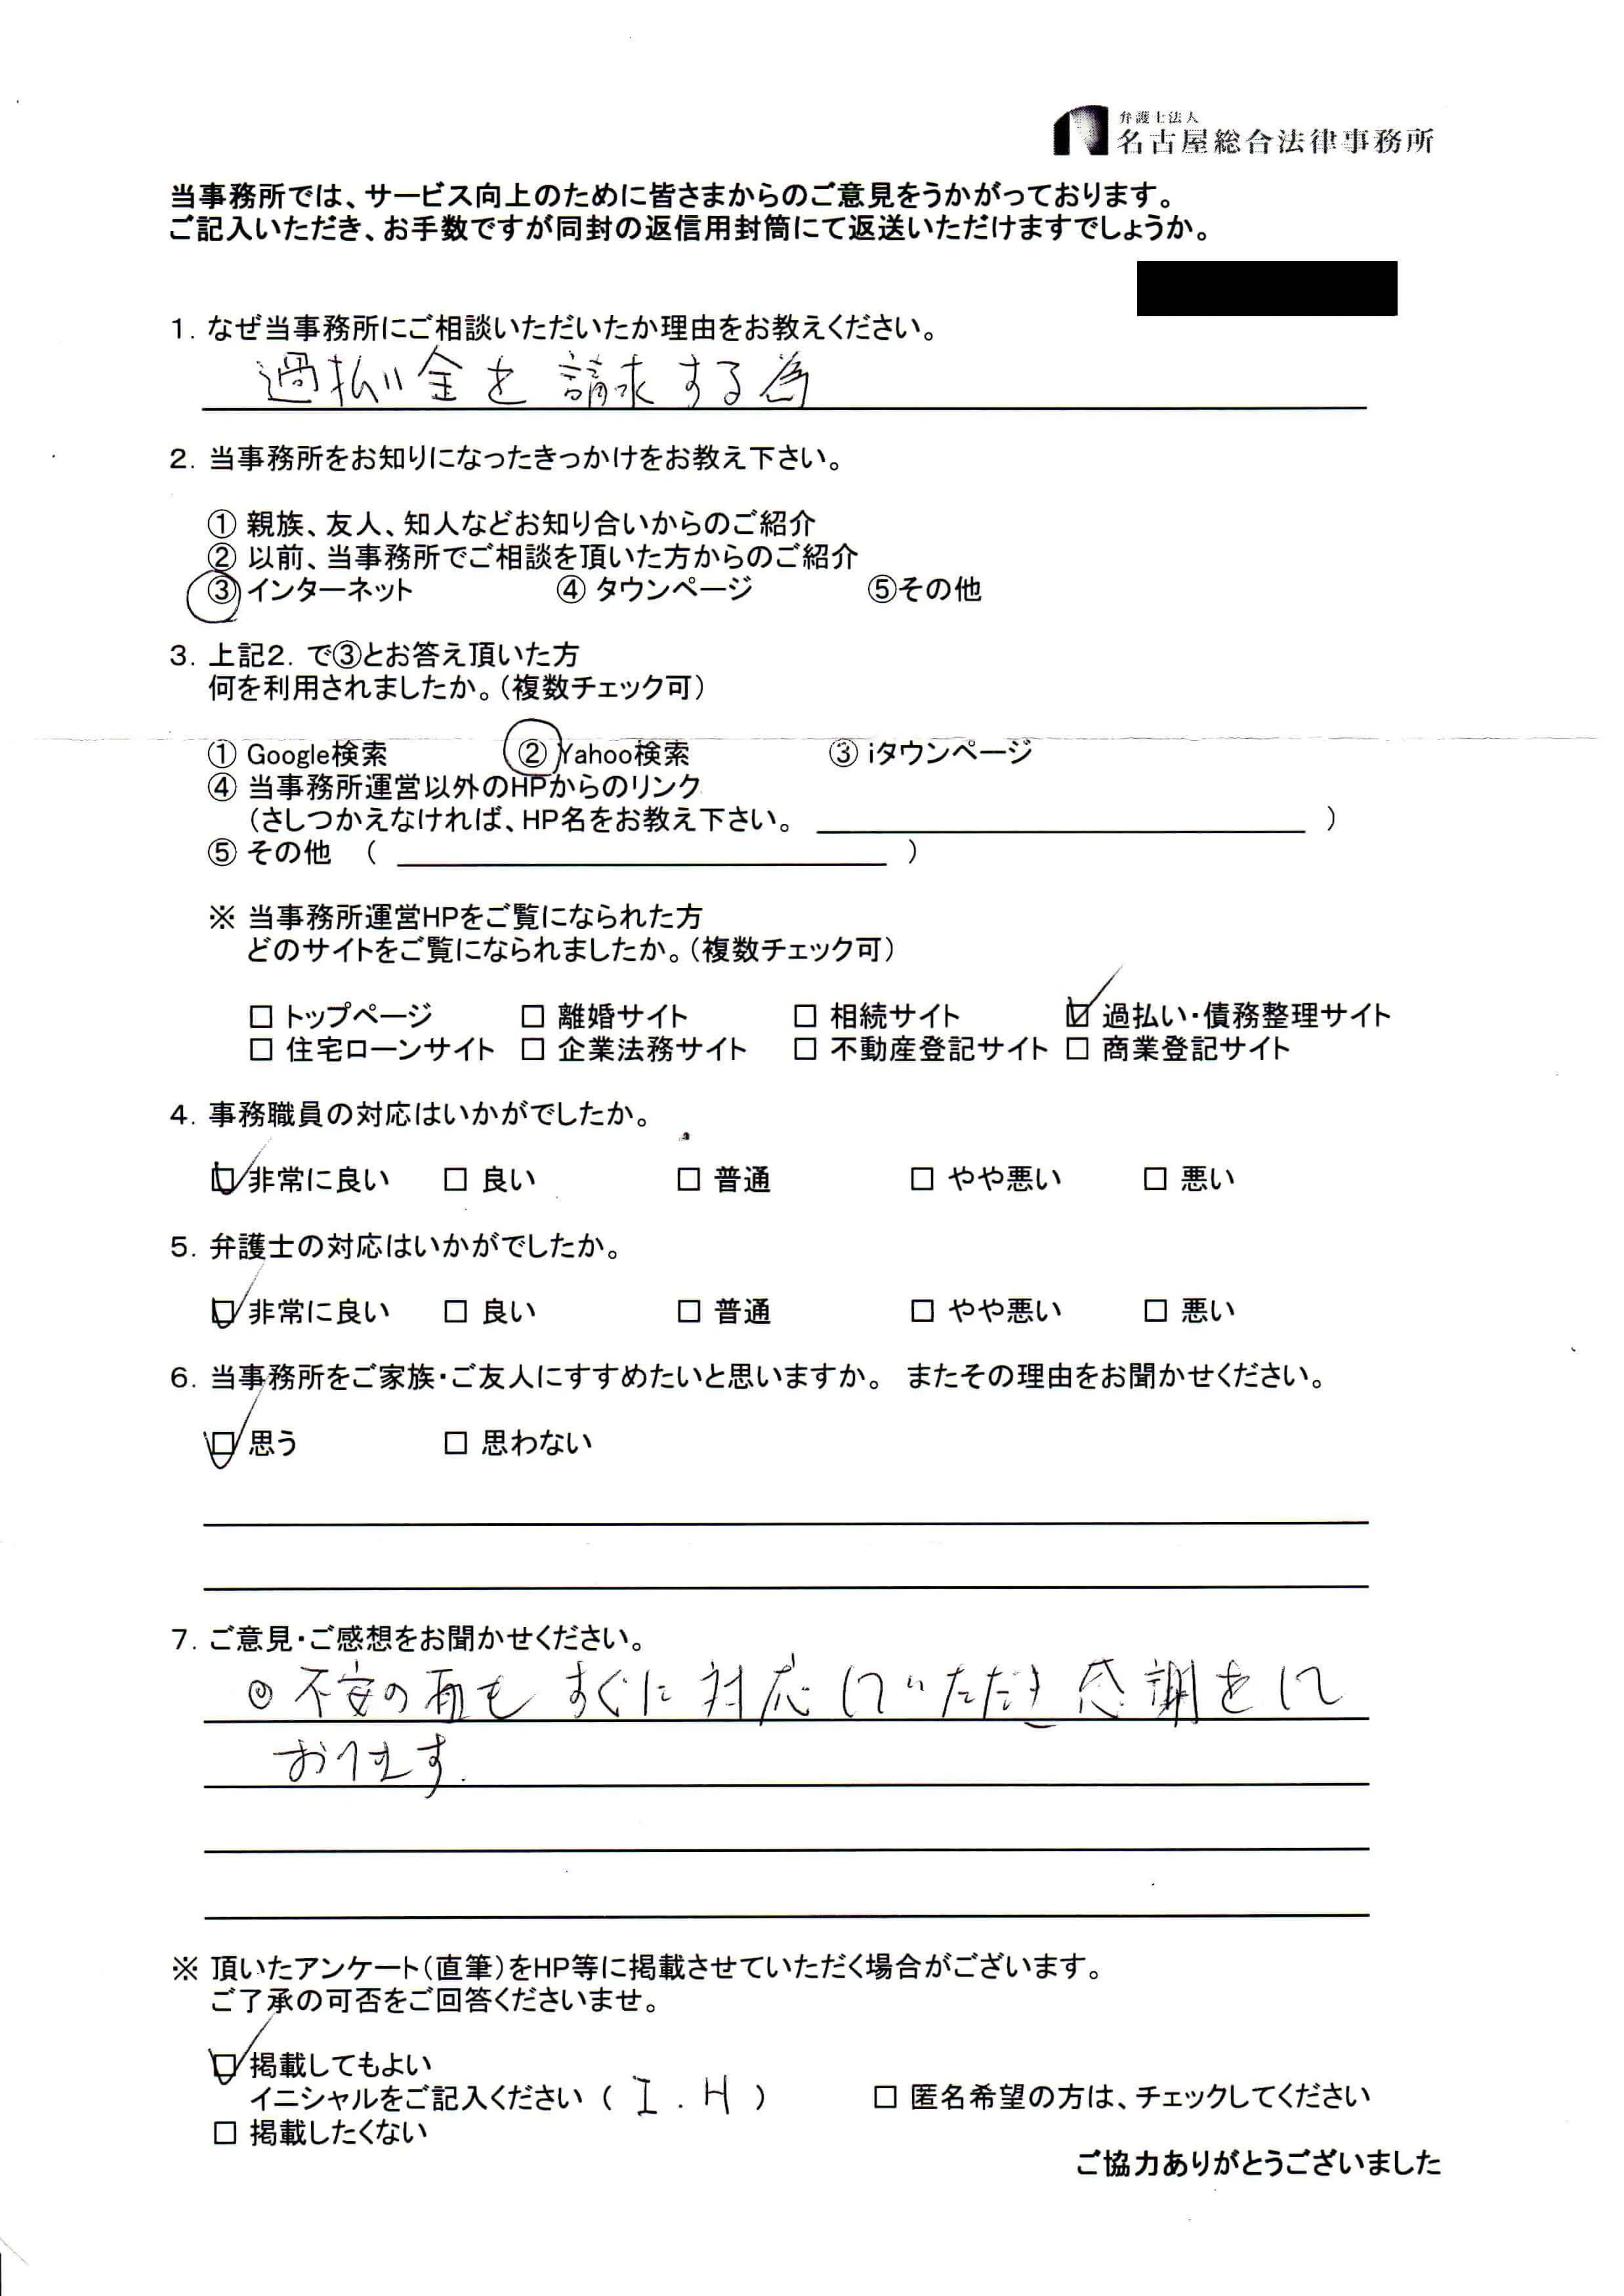 弁護士法人
名古屋総合法律事務所
当事務所では、サービス向上のために皆さまからのご意見をうかがっております。
ご記入いただき、お手数ですが同封の返信用封筒にて返送いただけますでしょうか。
1. なぜ当事務所にご相談いただいたか理由をお教えください。
過払い金を請求する為
2. 当事務所をお知りになったきっかけをお教え下さい。
① 親族、友人、知人などお知り合いからのご紹介
② 以前、当事務所でご相談を頂いた方からのご紹介
③ インターネット ④ タウンページ ⑤その他
3. 上記2. で③とお答え頂いた方
何を利用されましたか。（複数チェック可）
① Google検索 ② Yahoo検索 ③ iタウンページ
④ 当事務所運営以外のHPからのリンク
（さしつかえなければ、HP名をお教え下さい。 ）
⑤ その他 （ ）
※ 当事務所運営HPをご覧になられた方
どのサイトをご覧になられましたか。（複数チェック可）
□ トップページ □ 離婚サイト □ 相続サイト ☑ 過払い・債務整理サイト
□ 住宅ローンサイト □ 企業法務サイト □ 不動産登記サイト □ 商業登記サイト
4. 事務職員の対応はいかがでしたか。
☑ 非常に良い □ 良い □ 普通 □ やや悪い □ 悪い
5. 弁護士の対応はいかがでしたか。
☑ 非常に良い □ 良い □ 普通 □ やや悪い □ 悪い
6. 当事務所をご家族・ご友人にすすめたいと思いますか。 またその理由をお聞かせください。
☑ 思う □ 思わない
7. ご意見・ご感想をお聞かせください。
◎ 不安の面も すぐに対応していただき感謝をして
おります.
※ 頂いたアンケート（直筆）をHP等に掲載させていただく場合がございます。
ご了承の可否をご回答くださいませ。
☑ 掲載してもよい
イニシャルをご記入ください （ I . H ） □ 匿名希望の方は、チェックしてください
□ 掲載したくない
ご協力ありがとうございました